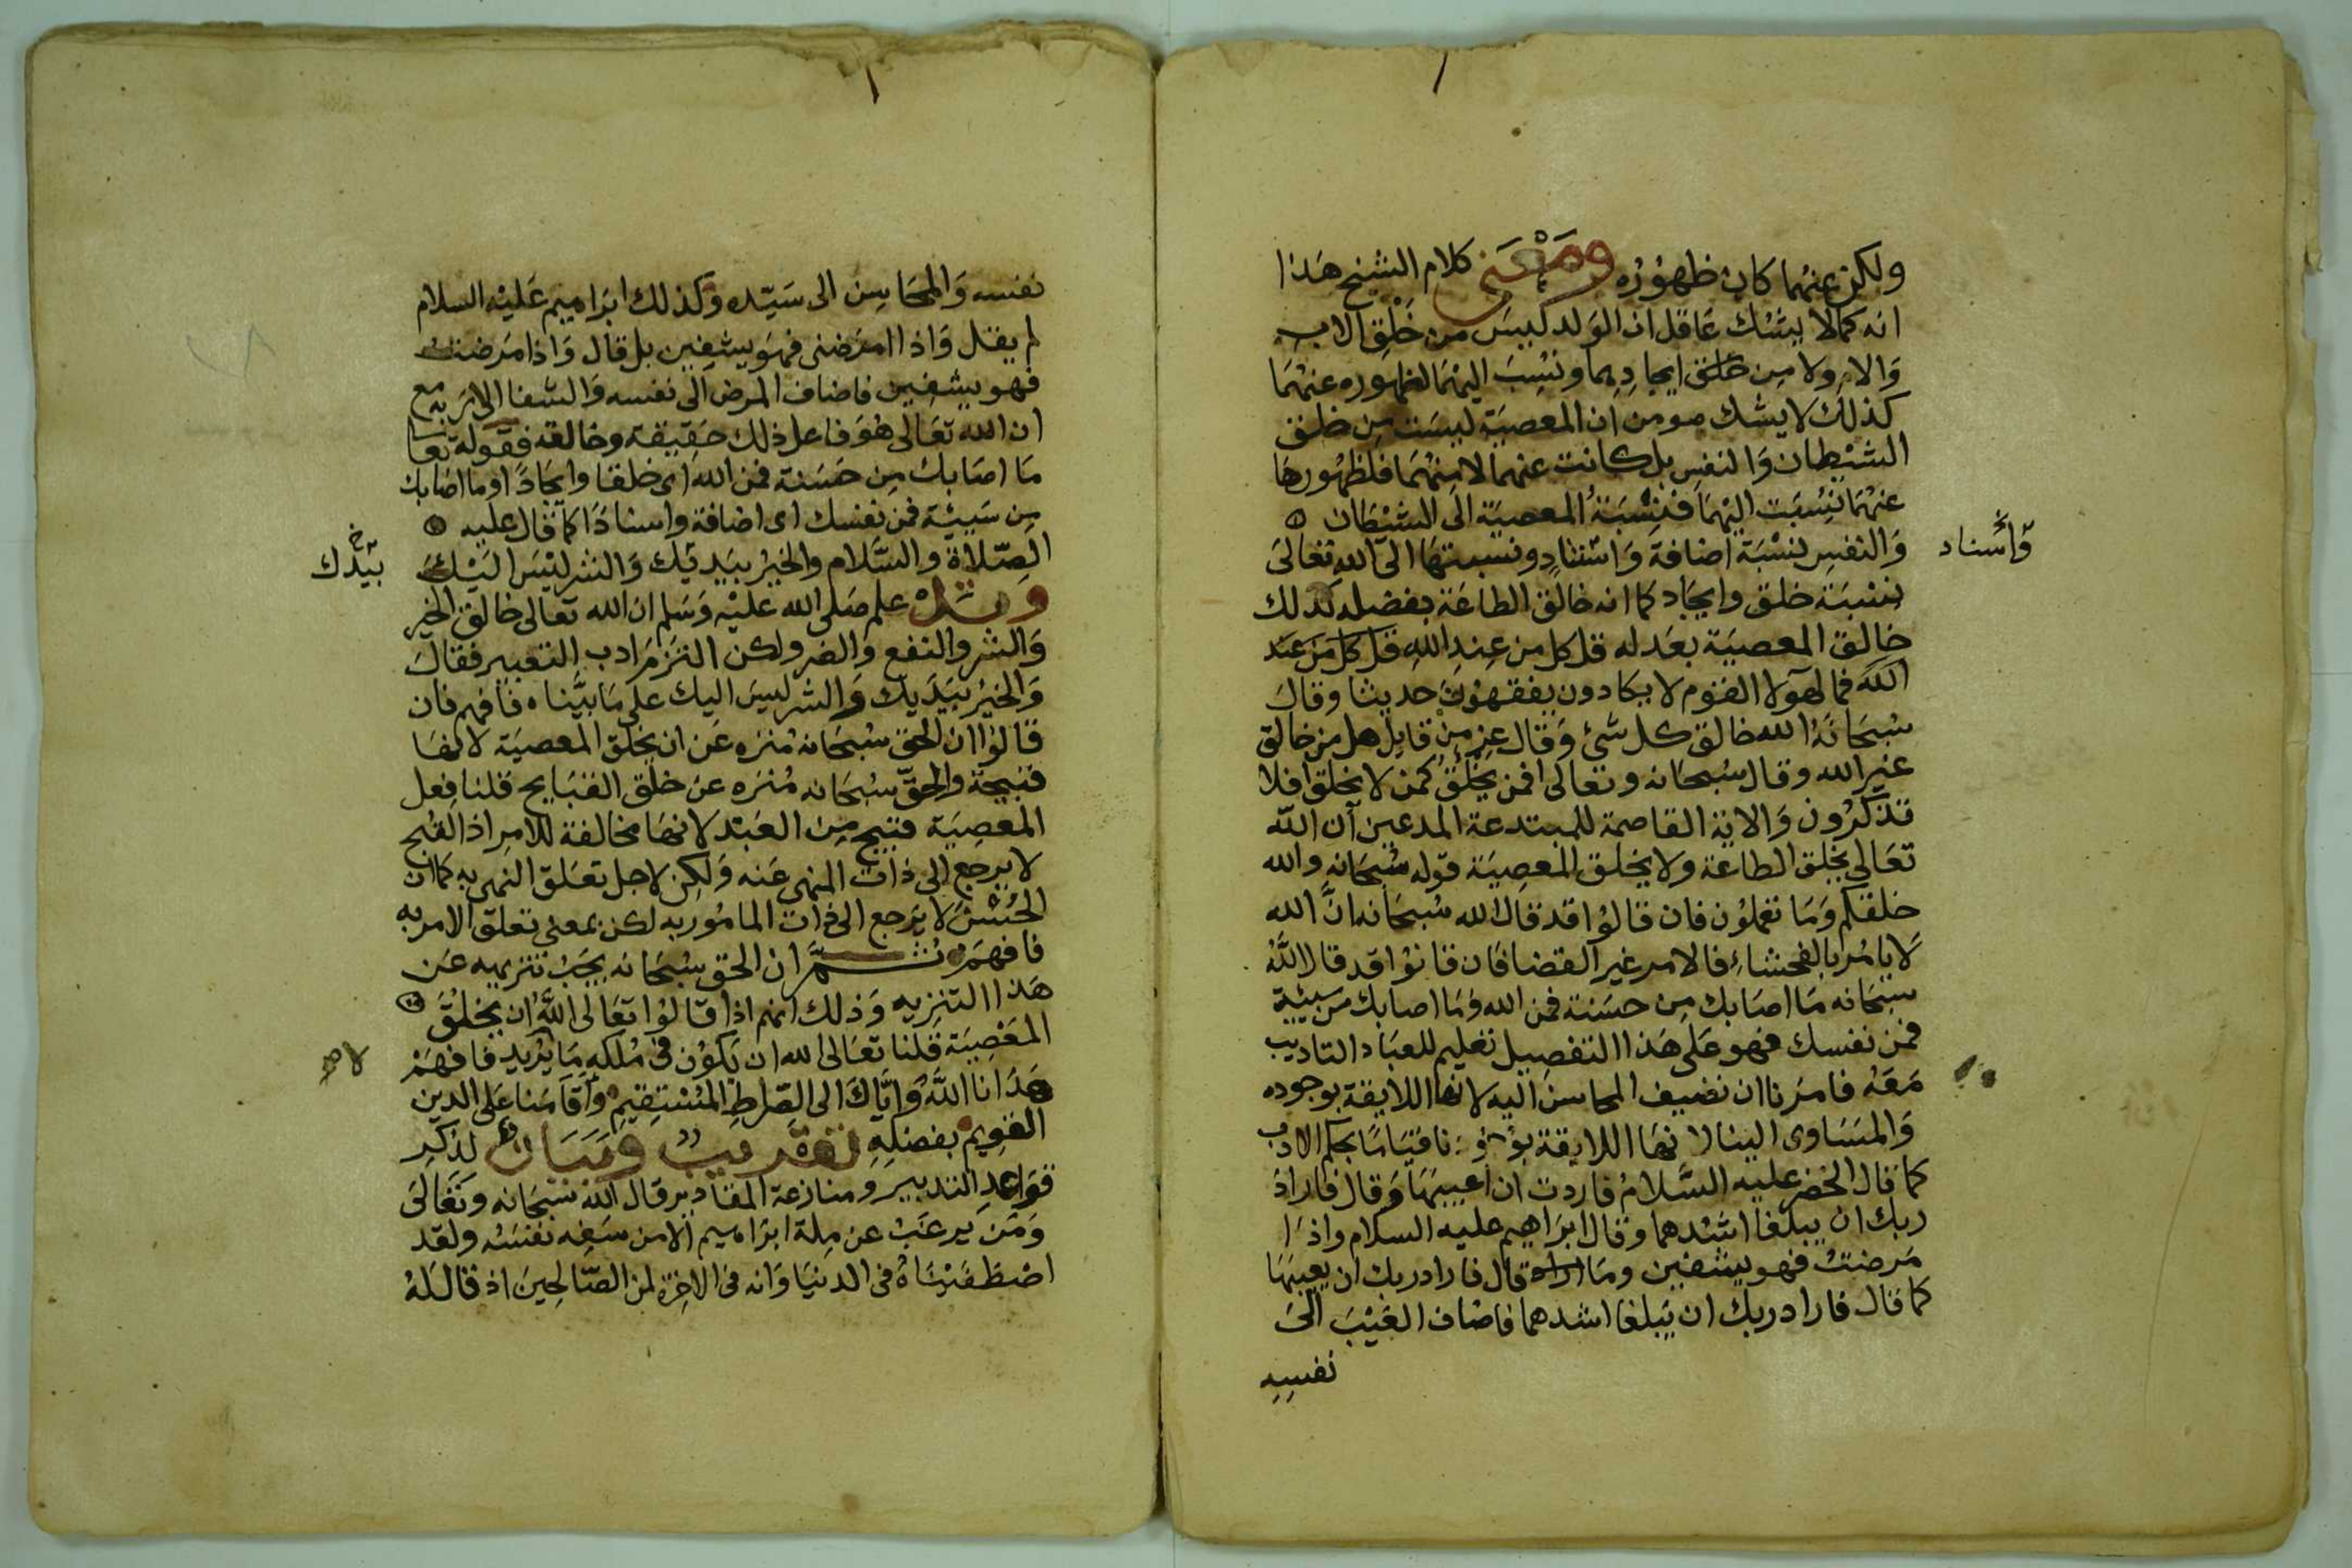 ولكن عنهما كان ظهوره ومعنى كلام الشيخ هذا
انه كما لا يشك عاقل ان الولد ليس من خلق الاب
والام ولا من خلق ايجادهما ونسب اليهما لظهوره عنهما
كذلك لا يشك مومن ان المعصية ليست من خلق
الشيطان والنفس بل كانت عنهما لا منهما فلظهورها
عنهما نسبت اليهما فنسبة المعصية الى الشيطان
والنفس نسبة اضافة واسناد ونسبتها الى الله تعالى
واسناد
نسبة خلق وايجاد كما انه خالق الطاعة بفضله كذلك
خالق المعصية بعدله قل كل من عند الله قل كل من عند
الله فمال هولا القوم لا يكادون يفقهون حديثا وقال
سبحانه الله خالق كل شئ وقال عز من قايل هل من خالق
غير الله وقال سبحانه وتعالى افمن يخلق كمن لا يخلق افلا
تذكرون والاية القاصمة للمبتدعة المدعين ان الله
تعالى يخلق الطاعة ولا يخلق المعصية قوله سبحانه والله
خلقكم وما تعملون فان قالوا قد قال الله سبحانه ان الله
لا يامر بالفحشاء فالامر غير القضا فان قالوا قد قال الله
سبحانه ما اصابك من حسنة فمن الله وما اصابك من سيئة
فمن نفسك فهو على هذا التفصيل تعليم للعباد التاديب
معه فامرنا ان نضيف المحاسن اليه لانها اللايقة بوجوده
والمساوى الينا لانها اللايقة بوجودنا قياما بحكم الادب
كما قال الخضر عليه السلام فاردت ان اعيبها وقال فاراد
ربك ان يبلغا اشدهما وقال ابراهيم عليه السلام واذا
مرضت فهو يشفين وما قال فاراد ربك ان يعيبها
كما قال فاراد ربك ان يبلغا اشدهما فاضاف العيب الى
نفسه
نفسه والمحاسن الى سيده وكذلك ابراهيم عليه السلام
لم يقل واذا امرضنى فهو يشفين بل قال واذا مرضت
فهو يشفين فاضاف المرض الى نفسه والشفا الى ربه مع
ان الله تعالى هو فاعل ذلك حقيقة وخالقه فقوله تعالى
ما اصابك من حسنة فمن الله اى خلقا وايجادا وما اصابك
من سيئة فمن نفسك اى اضافة واسنادا كما قال عليه
الصلاة والسلام والخير بيديك والشر ليس اليك
بيدك
وقد علم صلى الله عليه وسلم ان الله تعالى خالق الخير
والشر والنفع والضر ولكن التزم ادب التعبير فقال
والخير بيديك والشر ليس اليك على ما بيناه فافهم فان
قالوا ان الحق سبحانه منزه عن ان يخلق المعصية لانها
قبيحة والحق سبحانه منزه عن خلق القبايح قلنا فعل
المعصية قبيح من العبد لانها مخالفة للامر اذ القبح
لا يرجع الى ذات المنهى عنه ولكن لاجل تعلق النهى به كما ان
الحسن لا يرجع الى ذات المامور به لكن بمعنى تعلق الامر به
فافهم ثم ان الحق سبحانه يجب تنزيهه عن
هذا التنزيه وذلك انهم اذا قالوا تعالى الله ان يخلق
المعصية قلنا تعالى الله ان يكون فى ملكه ما يريد فافهم
لا صح
هدانا الله واياك الى الصراط المستقيم واقامنا على الدين
القويم بفضله تقريب وبيان لذكر
قواعد التدبير ومنازعة المقادير قال الله سبحانه وتعالى
ومن يرغب عن ملة ابراهيم الا من سفه نفسه ولقد
اصطفيناه فى الدنيا وانه فى الاخرة لمن الصالحين اذ قال له